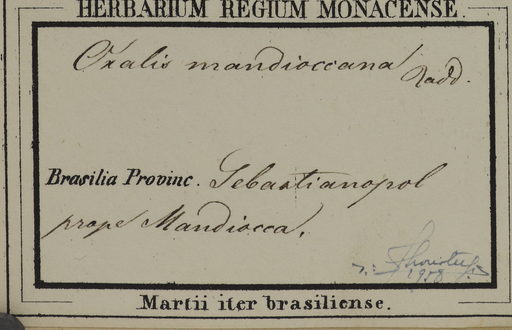 HERBARIUM REGIUM MONACENSE.
Oxalis mandioccana Radd.
Brasilia Provinc. Sebastianopol
prope Mandiocca.
1958
Martii iter brasiliense.